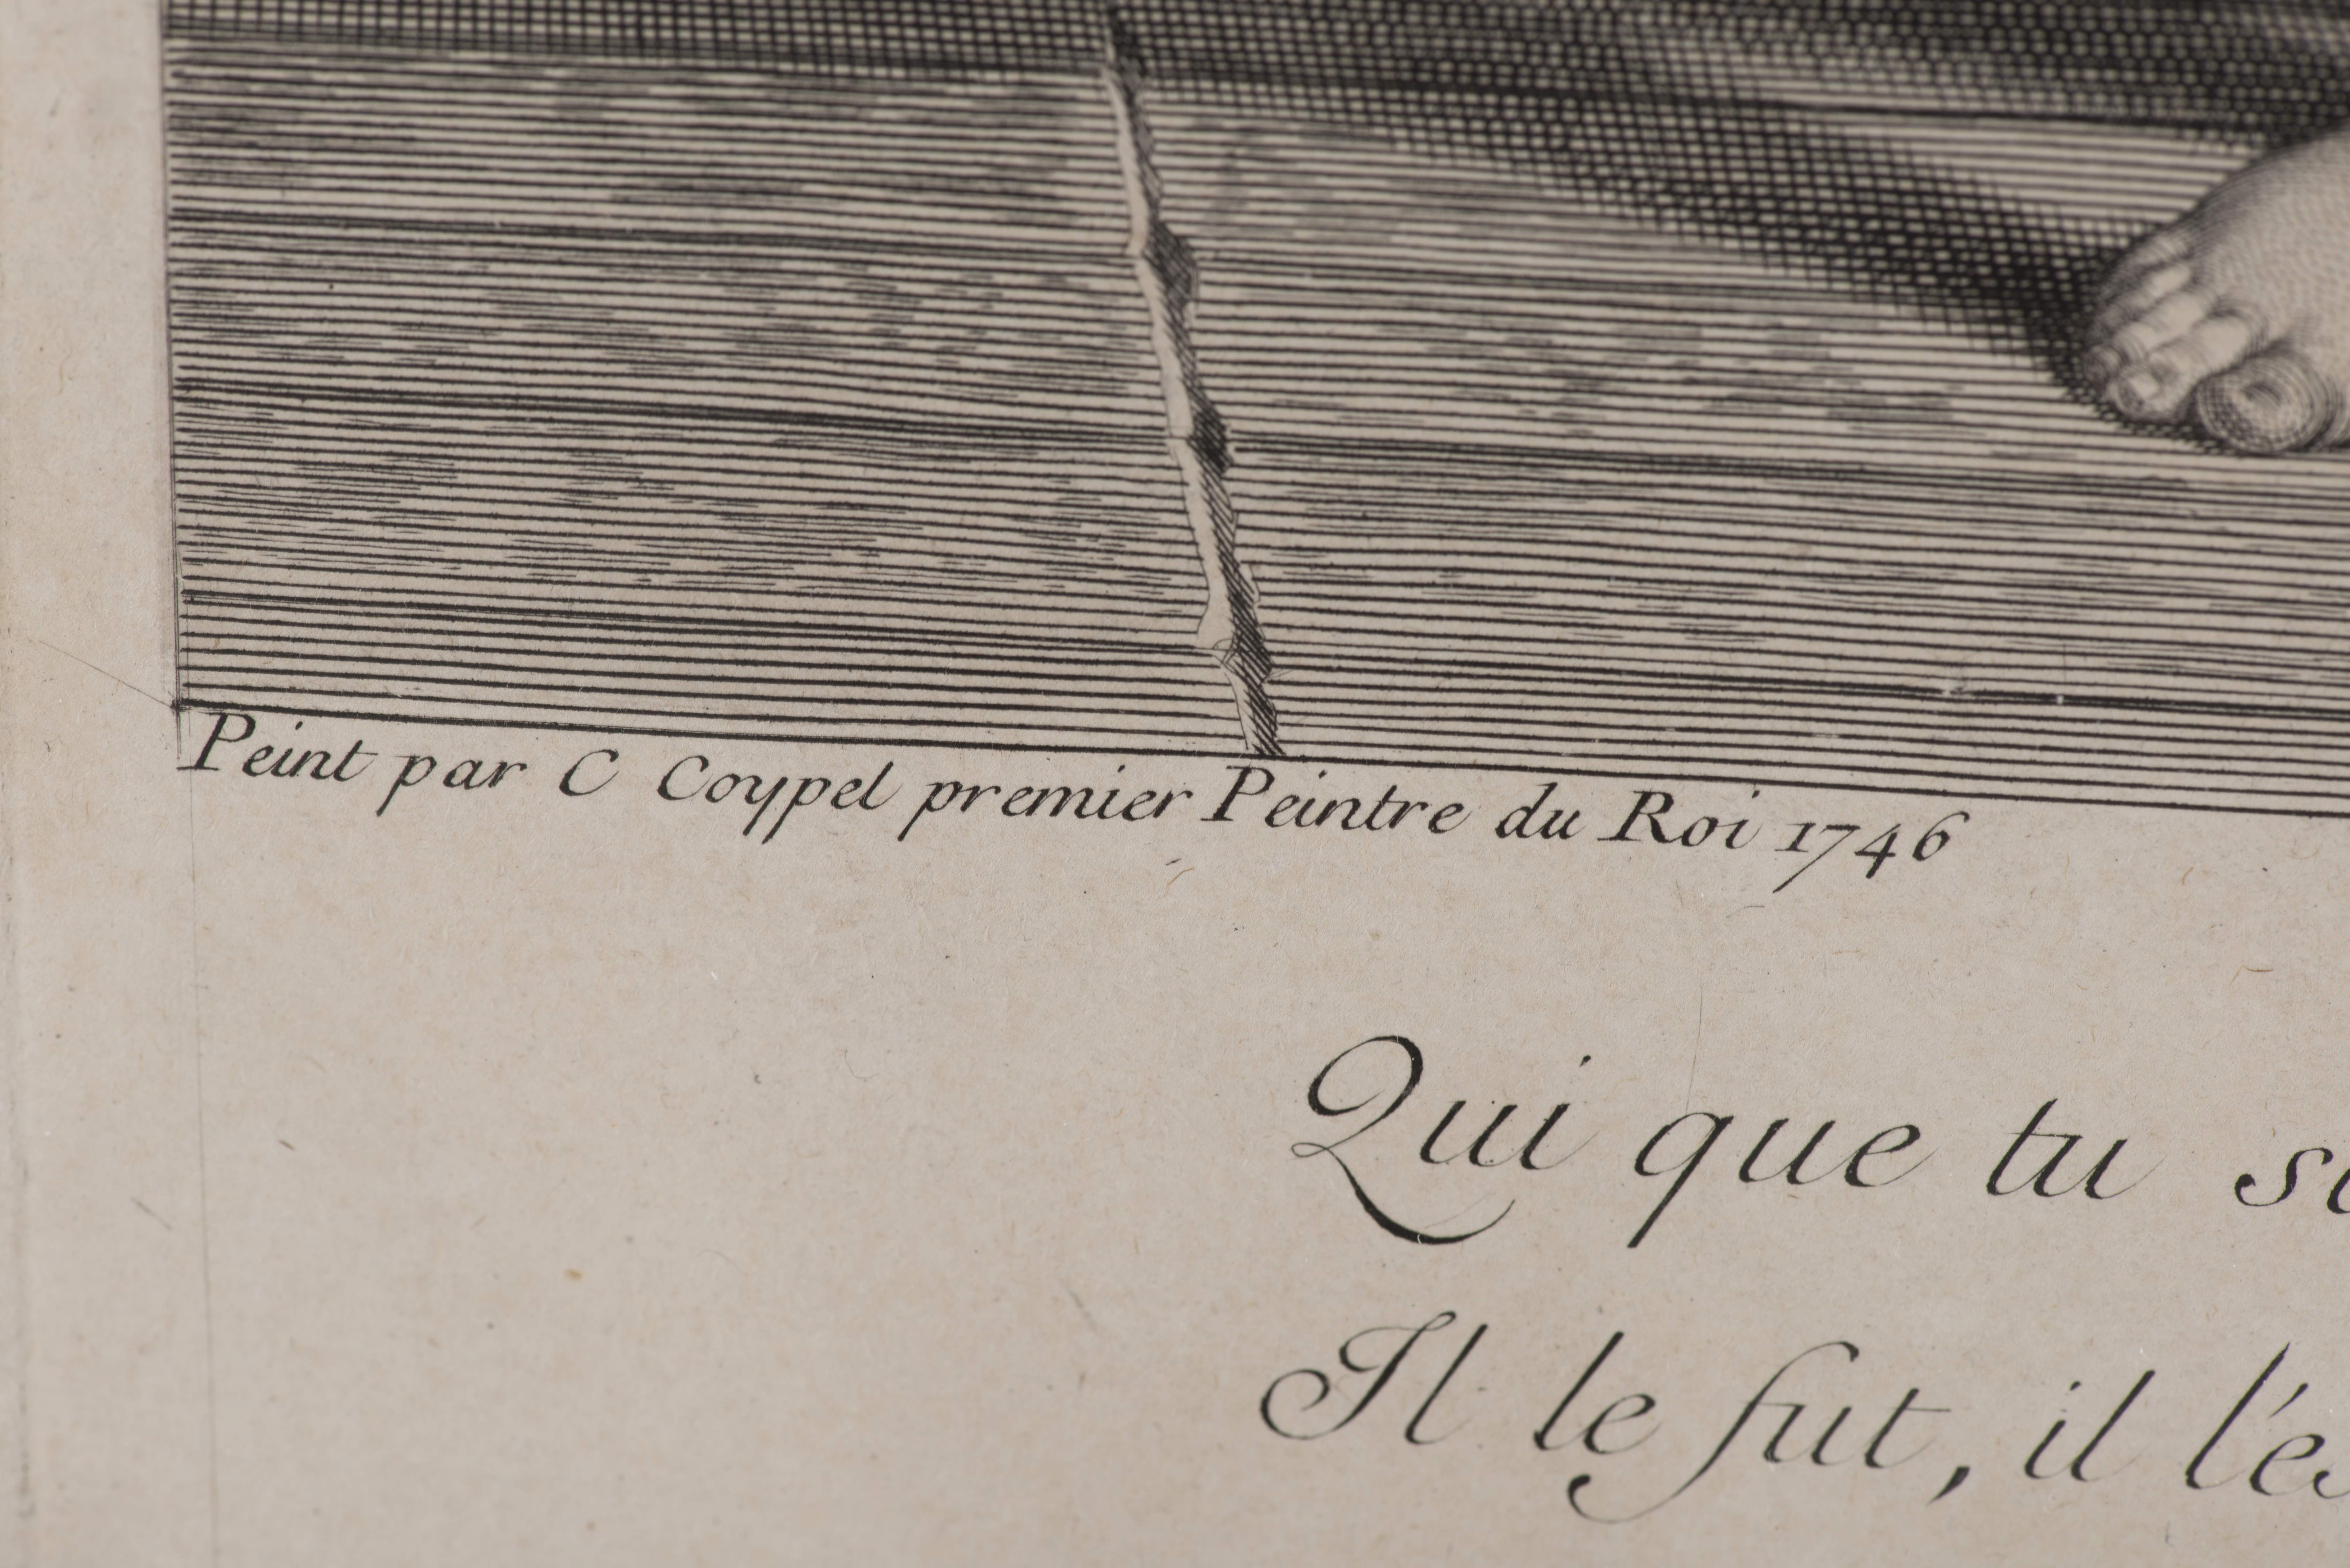 Peint par C Coypel premier Peintre du Roi 1746
Qui que tu
Il le fut, il